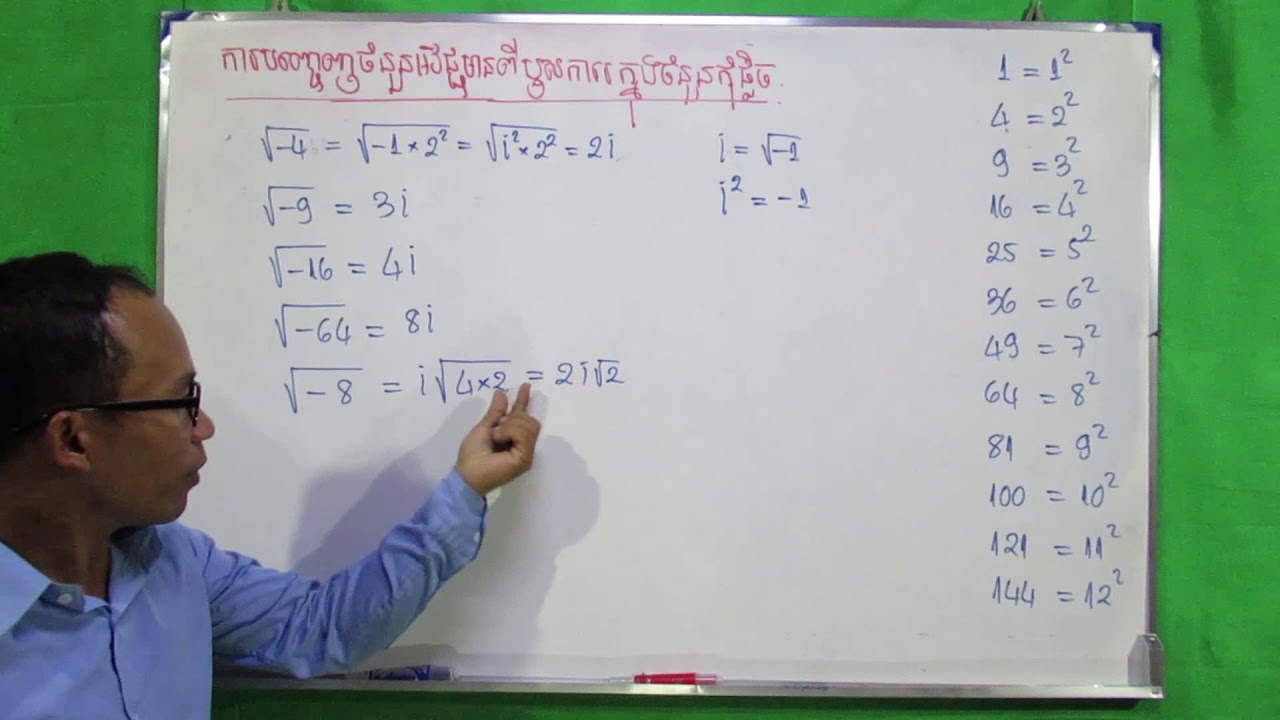 ការបញ្ចេញចំនួនអវិជ្ជមានពីឫសការេក្នុងចំនួនកុំផ្លិច
√-4 = √-1×2² = √i²×2² = 2i
√-9 = 3i
√-16 = 4i
√-64 = 8i
√-8 = i√4×2 = 2i√2
i = √-1
i² = -1
1 = 1²
4 = 2²
9 = 3²
16 = 4²
25 = 5²
36 = 6²
49 = 7²
64 = 8²
81 = 9²
100 = 10²
121 = 11²
144 = 12²